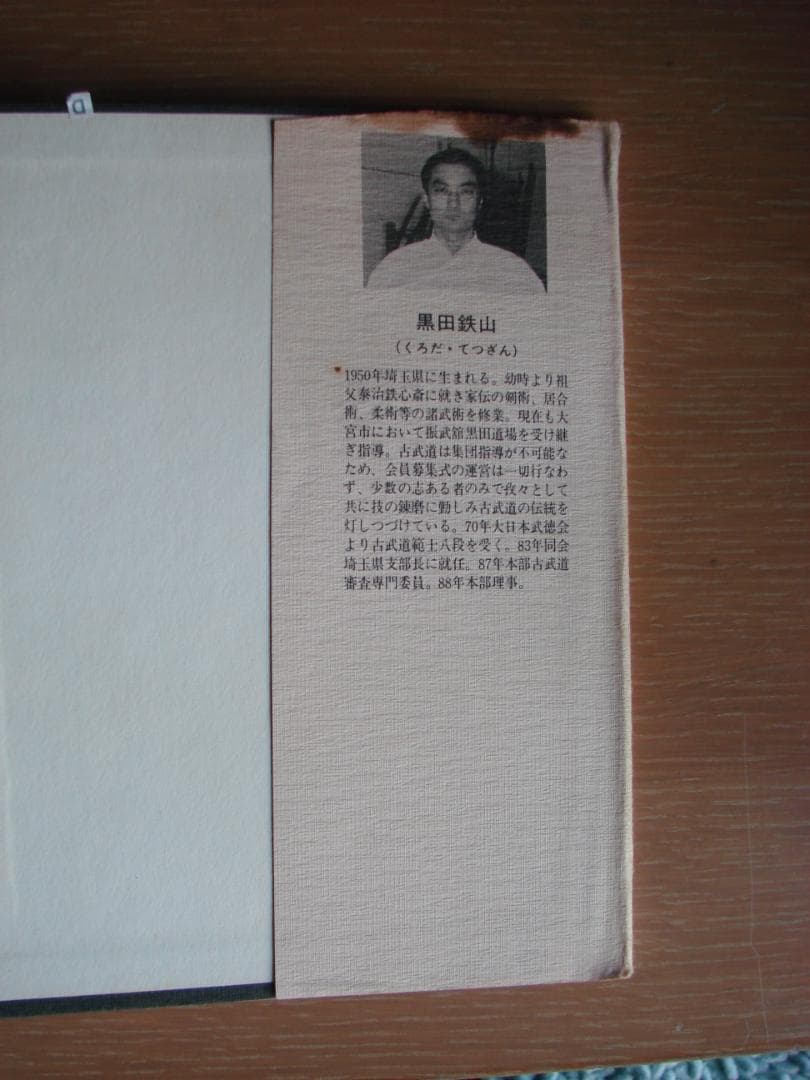 黒田鉄山
(くろだ・てつざん)
1950年埼玉県に生まれる。幼時より祖
父泰治鉄心斎に就き家伝の剣術、居合
術、柔術等の諸武術を修業。現在も大
宮市において振武舘黒田道場を受け継
ぎ指導。古武道は集団指導が不可能な
ため、会員募集式の運営は一切行なわ
ず、少数の志ある者のみで孜々として
共に技の錬磨に勤しみ古武道の伝統を
灯しつづけている。70年大日本武徳会
より古武道範士八段を受く。83年同会
埼玉県支部長に就任。87年本部古武道
審査専門委員。88年本部理事。